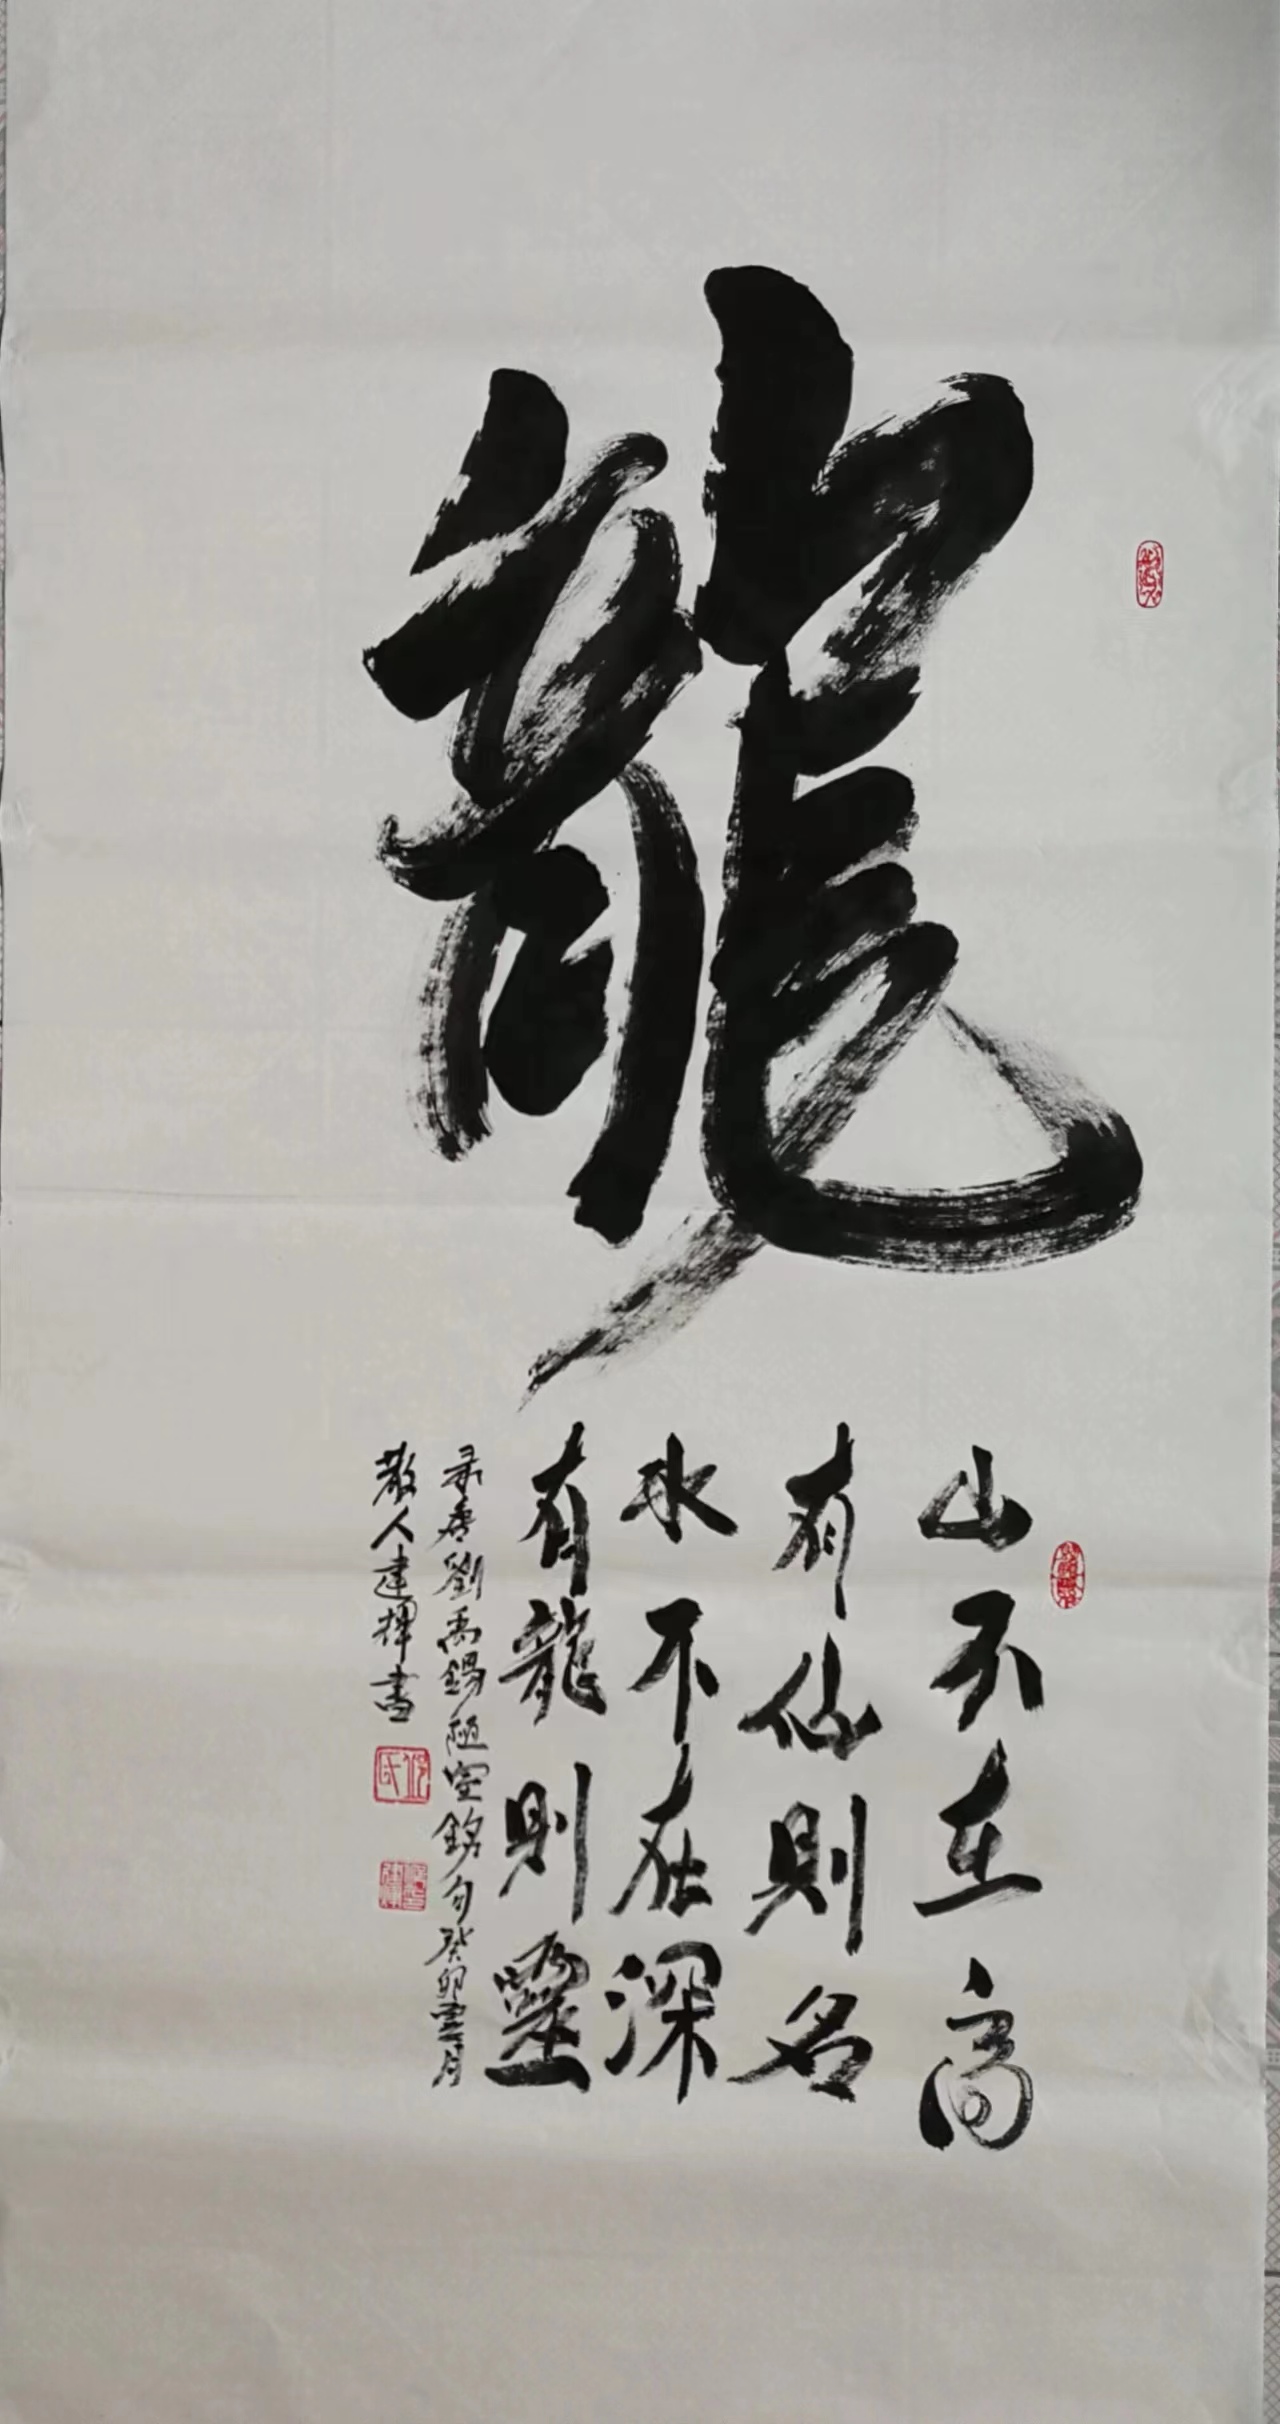 龍
山不在高
有仙則名
水不在深
有龍則靈
录唐劉禹錫陋室銘句癸卯雲月
散人建揮書